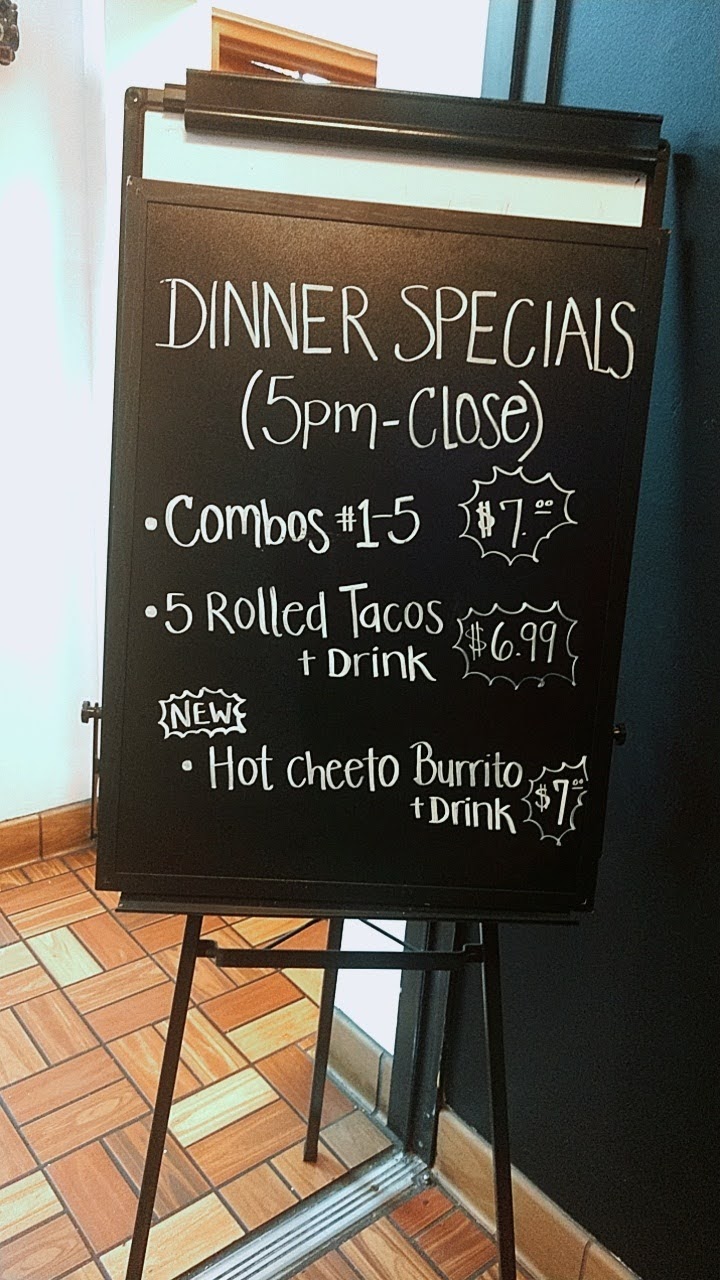 DINNER SPECIALS
(5pm-Close)
• Combos #1-5 $7.00
• 5 Rolled Tacos $6.99
+ Drink
NEW
• Hot cheeto Burrito $7.00
+ Drink